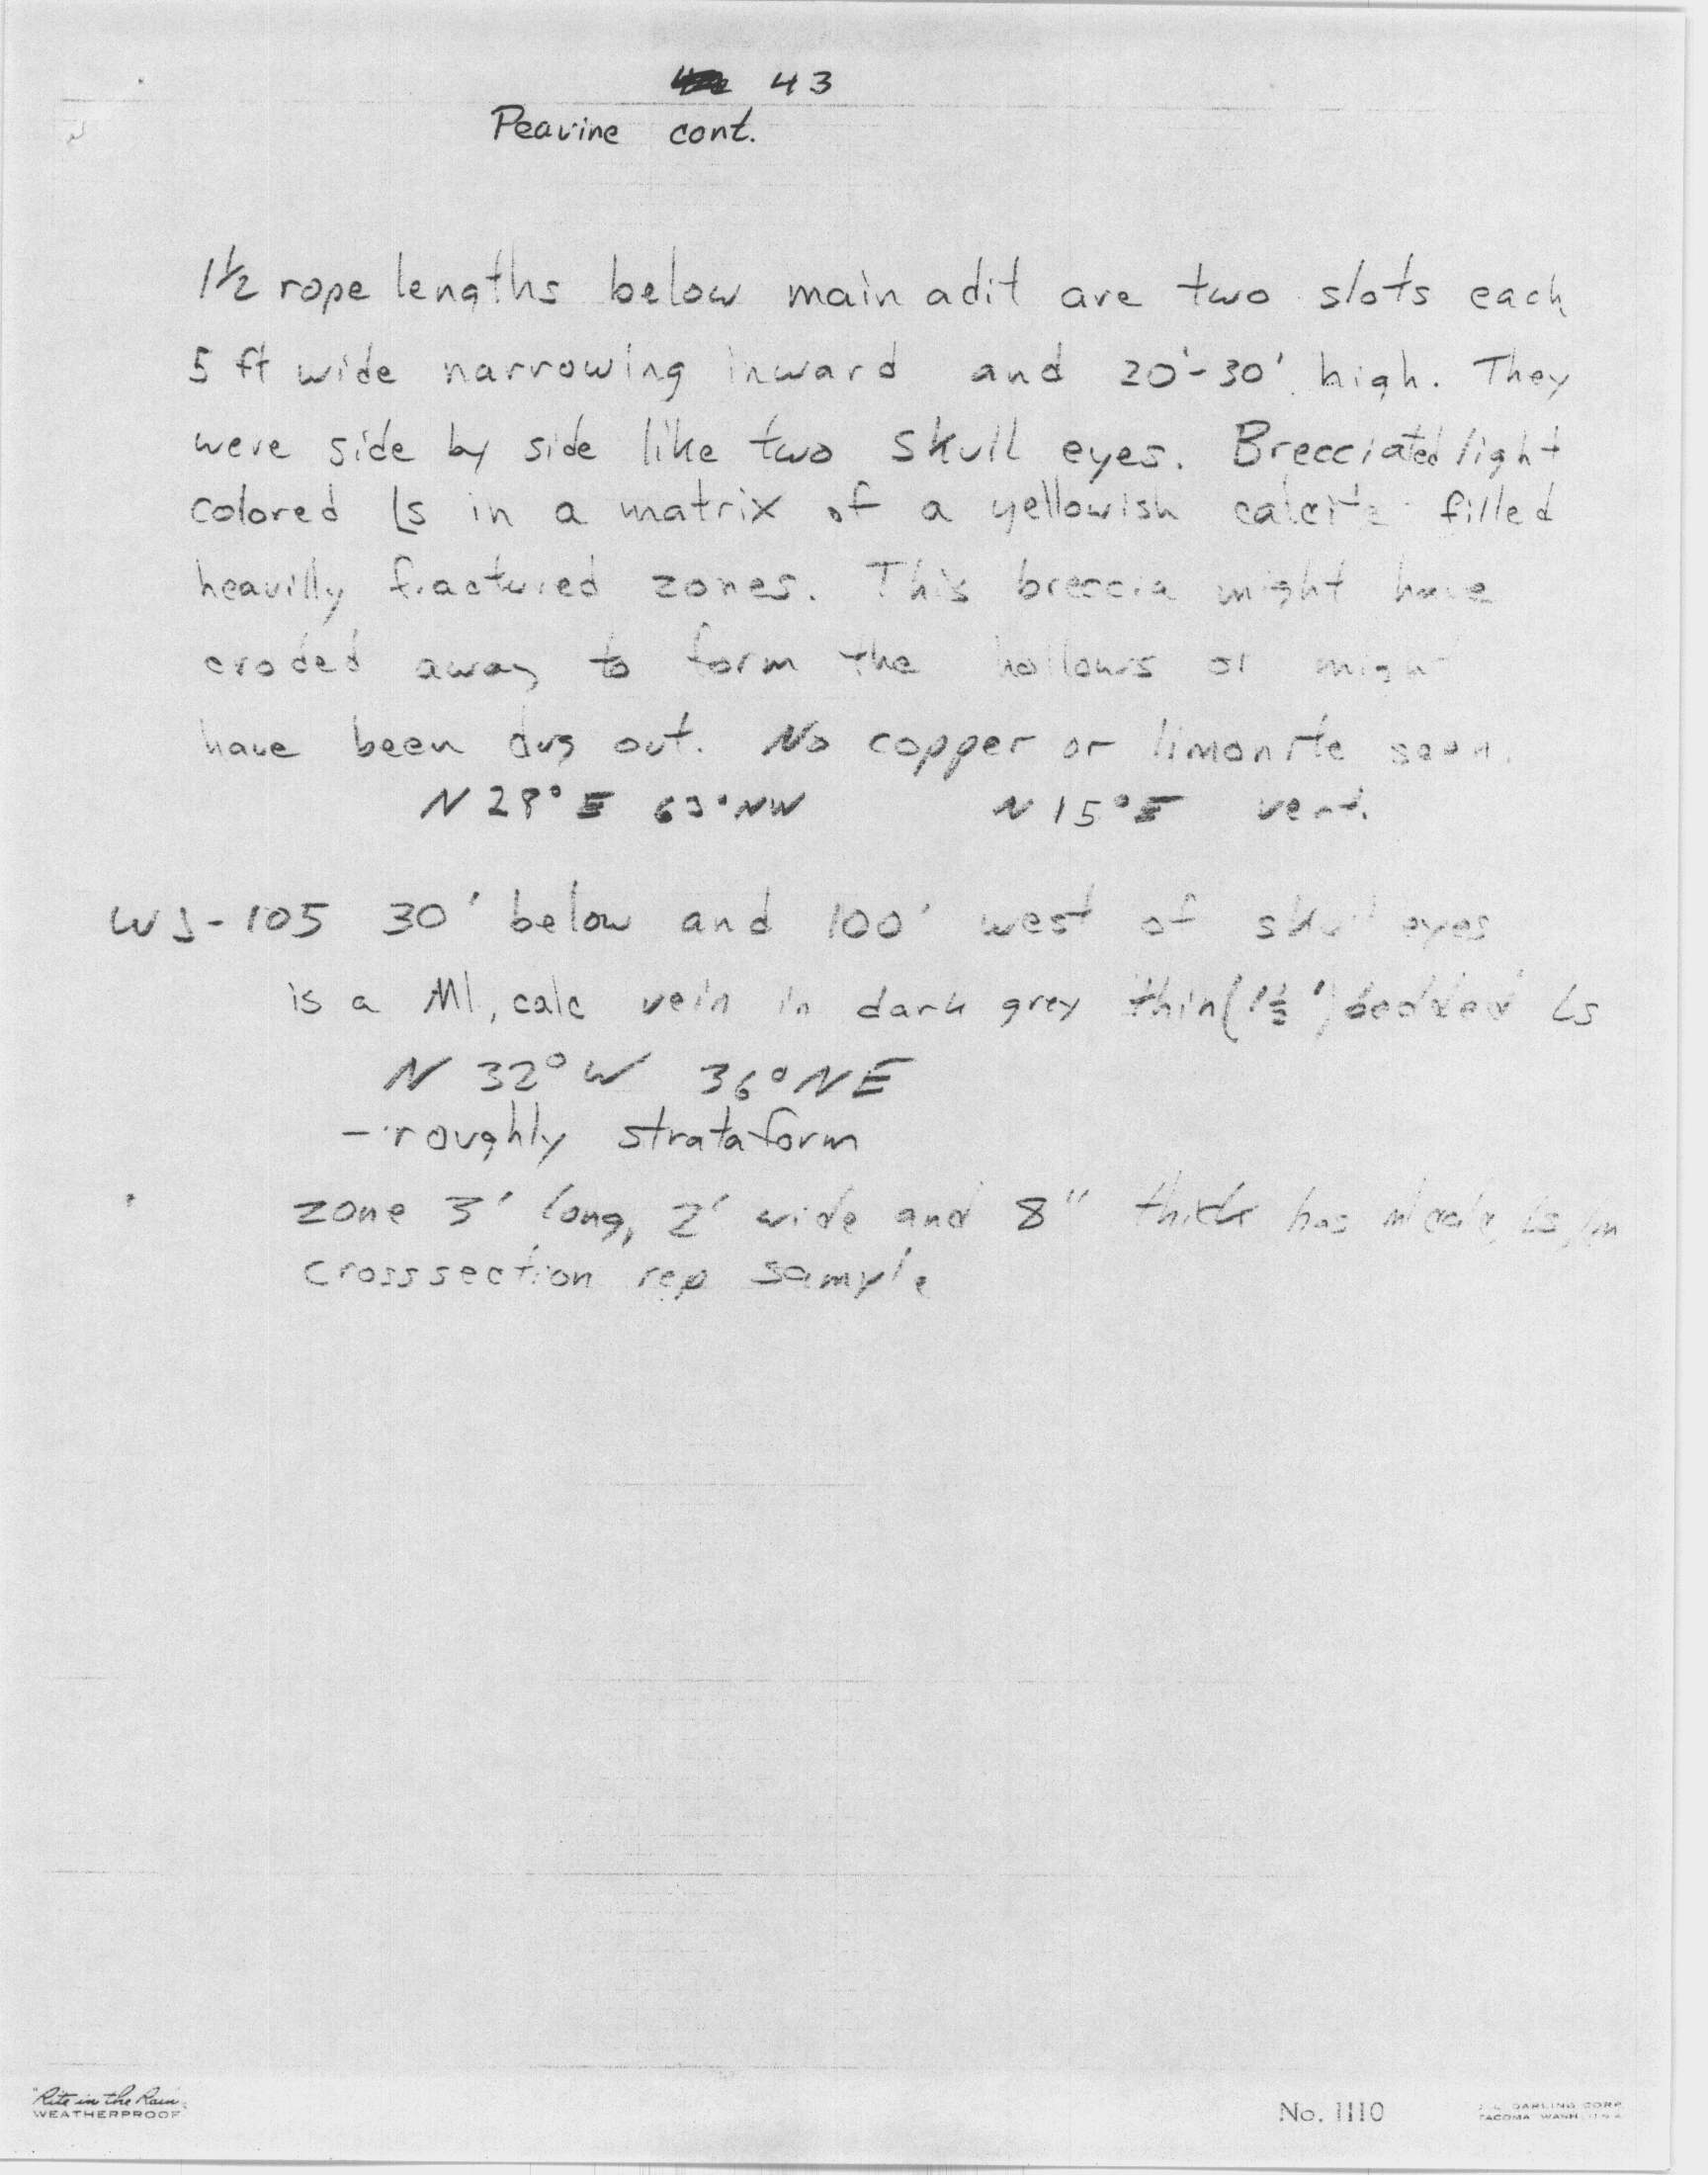 43
Peavine cont.
1½ rope lengths below main adit are two slots each
5 ft wide narrowing inward and 20'-30' high. They
were side by side like two skull eyes. Brecciated light
colored Ls in a matrix of a yellowish calcite filled
heavilly fractured zones. This breccia might have
eroded away to form the hollows or might
have been dug out. No copper or limonite seen.
N 28° E 63° NW N 15° E vert.
WJ-105 30' below and 100' west of skull eyes
is a Ml, calc vein in dark grey thin (1½') bedded Ls
N 32° W 36° NE
- roughly strataform
zone 3' long, 2' wide and 8" thick has
crosssection rep sample
"Rite in the Rain"
WEATHERPROOF
No. 1110
DARLING CORP
TACOMA WASH. U.S.A